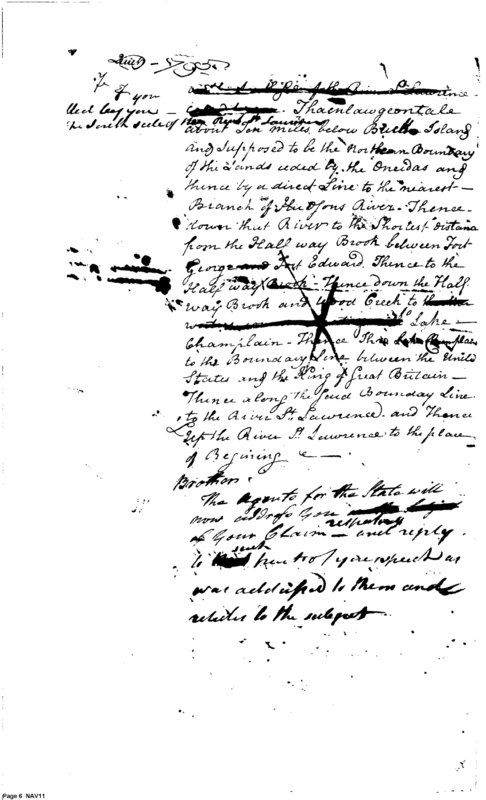 If you
called by you —
the South side of the River St Lawrence
Thainlawgeontale
about Ten Miles below Buck Island
and Supposed to be the Northern Boundary
of the Lands ceded by the Oneidas and
thence by a direct Line to the nearest —
Branch of Hudsons River - Thence
down that River to the Shortest Distance
from the Half way Brook between Fort
George and Fort Edward Thence to the
Half way Brook - Thence down the Half
way Brook and Wood Creek to
Lake —
Champlain - Thence Thro Lake Champlain
to the Boundary Line between the United
States and the King of Great Britain —
Thence along the said Bounday Line
to the River St Lawrence and Thence
Up the River St Lawrence to the place
of Begining
Brothers
The Agents for the State will
now address You
of Your Claim — respecting and reply
to such part of your speech as
was addressed to them and
relates to the subject
Page 6 NAV11